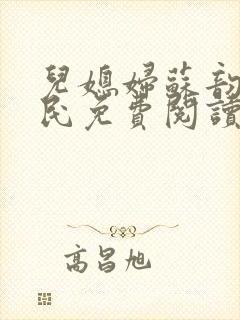 兒媳婦蘇韵
民免費閱讀
高昌旭